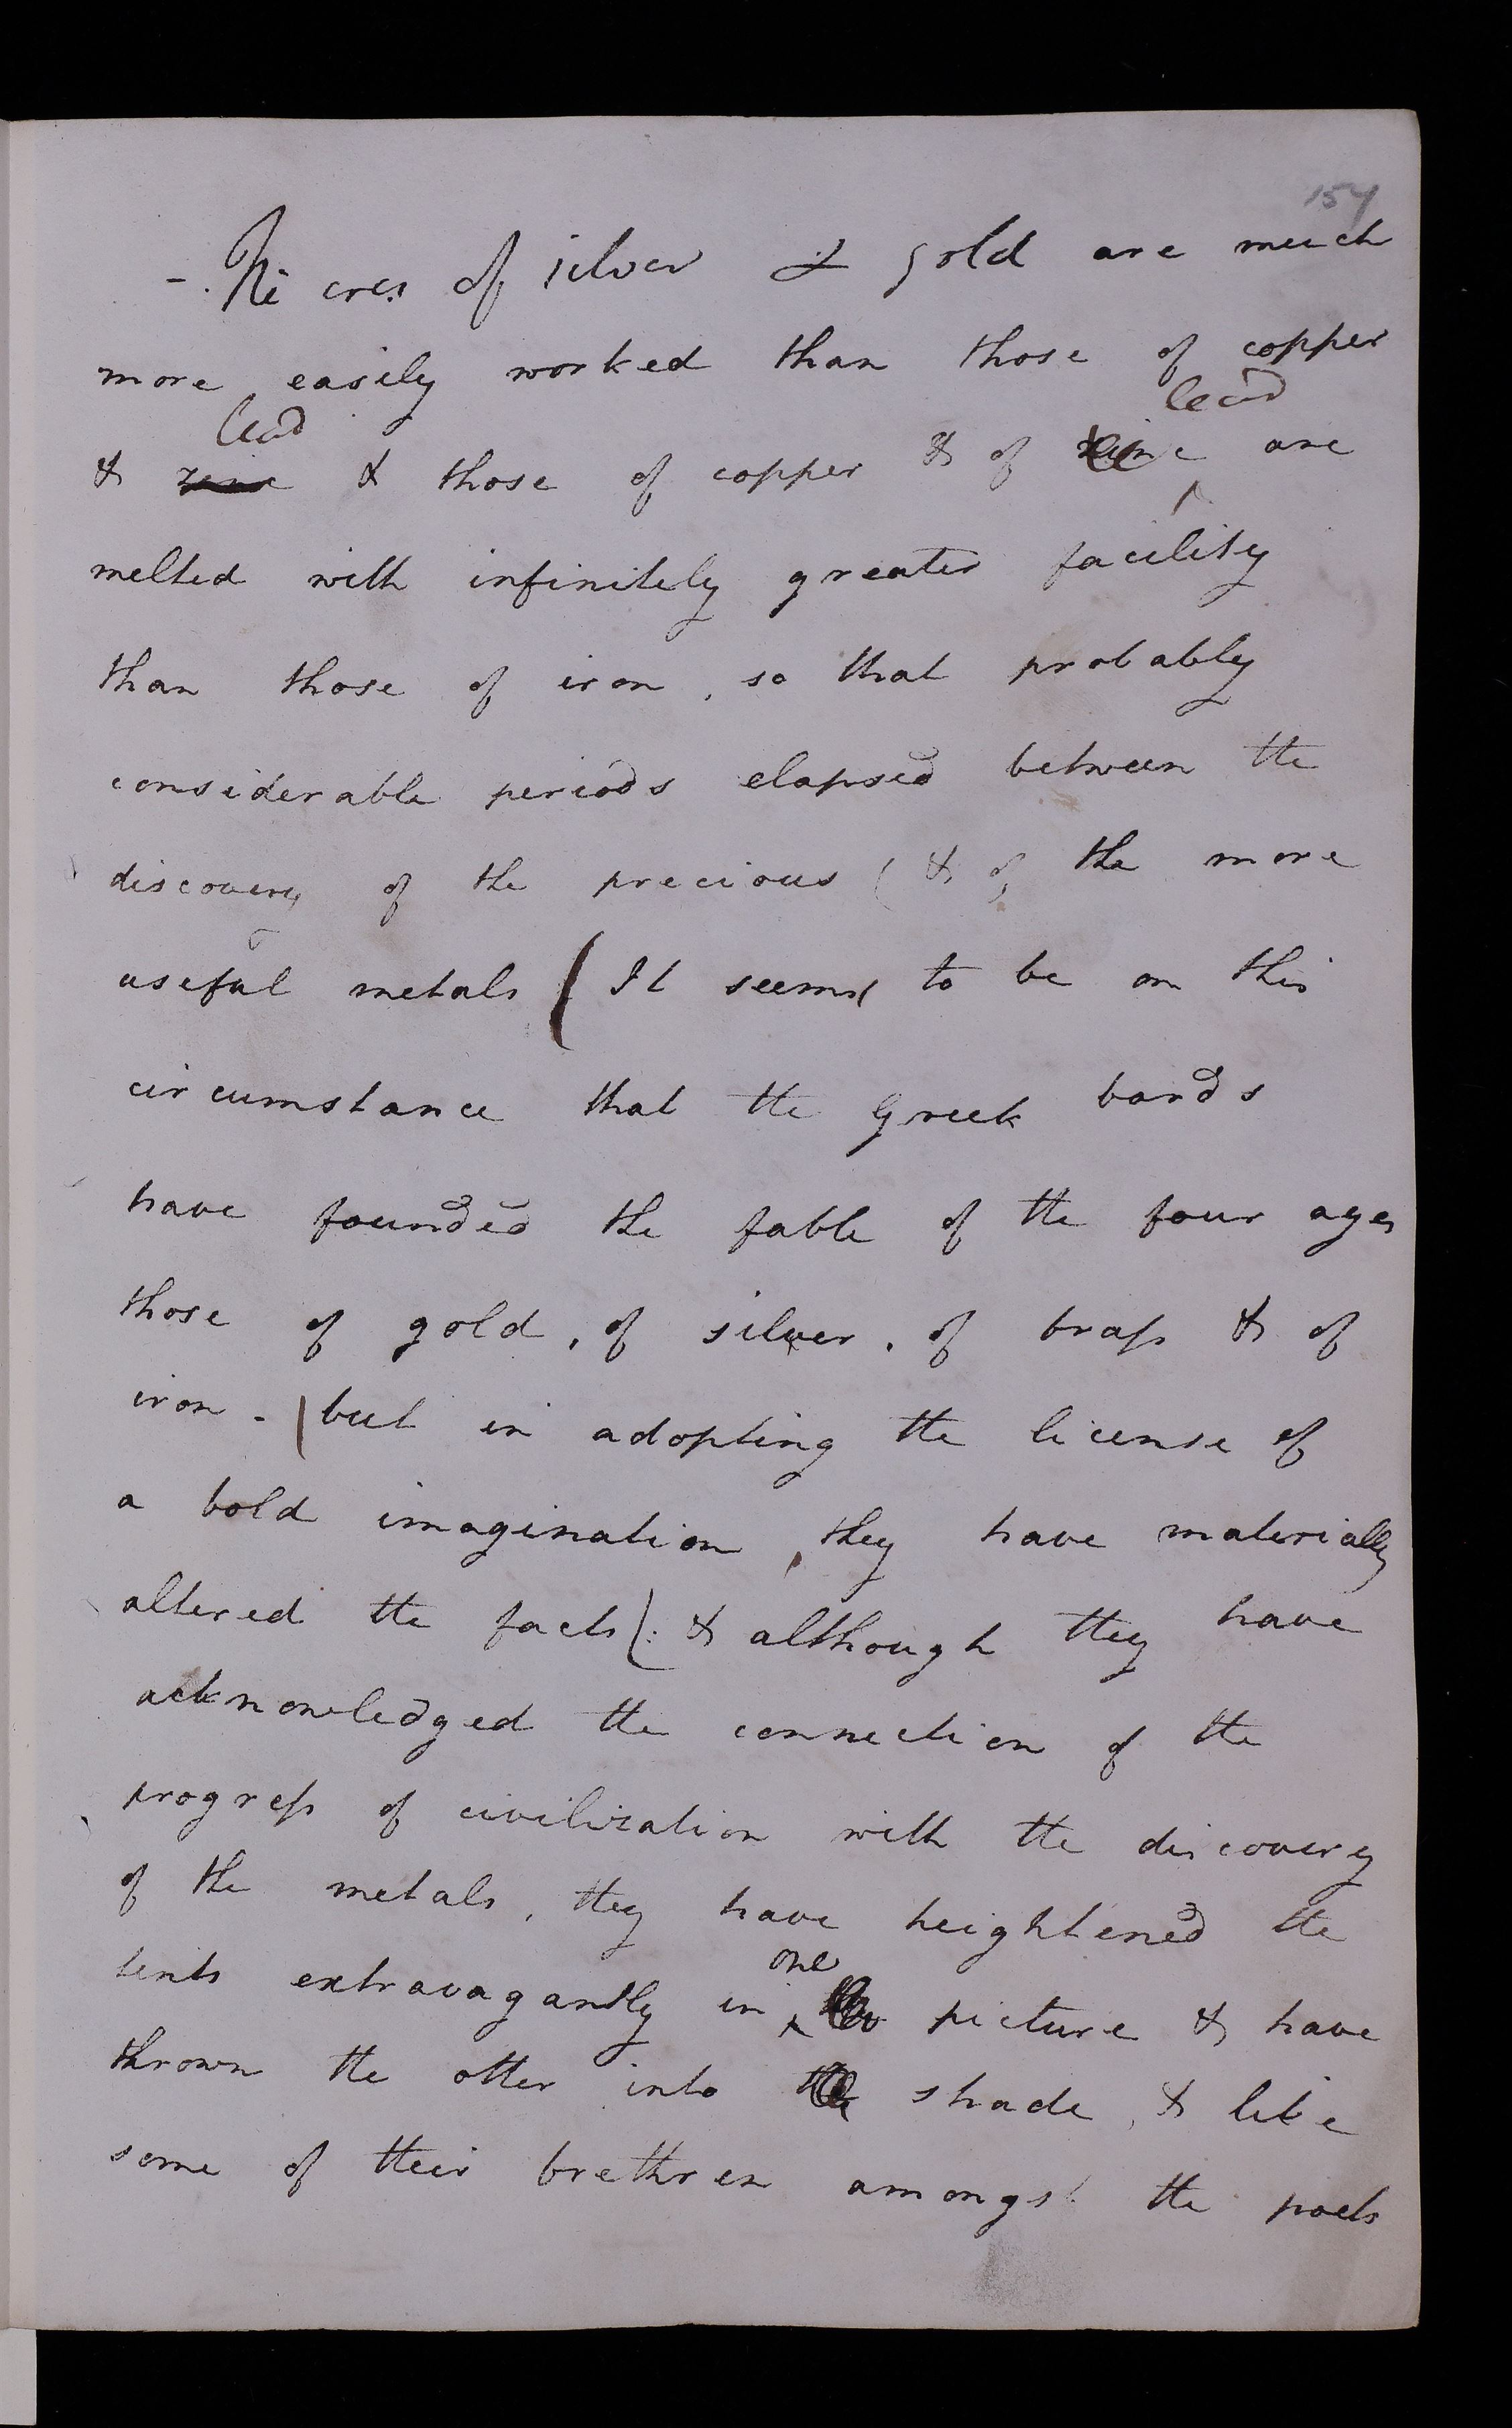 157
-. The ores of silver & gold are much
more easily worked than those of copper
lead lead
& zinc & those of copper & of zinc are
melted with infinitely greater facility
than those of iron, so that probably
considerable periods elapsed between the
discovery of the precious ( & of the more
useful metals ( It seems to be on this
circumstance that the Greek bards
have founded the fable of the four ages
those of gold, of silver, of brass & of
iron - ) but in adopting the license of
a bold imagination, they have materially
altered the facts ) : & although they have
acknowledged the connection of the
progress of civilization with the discovery
of the metals, they have heightened the
one
tints extravagantly in picture & have
thrown the other into the shade, & like
some of their brethren amongst the poets